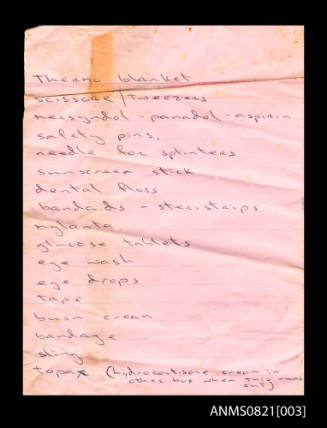 Thermo blanket
scissors/tweezers
mersyndol - panadol - aspirin
safety pins,
needle for splinters
sunscreen stick
dental floss
bandaids - steristrips.
mylanta
glucose tablets
eye wash
eye drops
tape
burn cream
bandage
sling
(hydrocortisone cream in
other box when this runs
out)
ANMS0821[003]